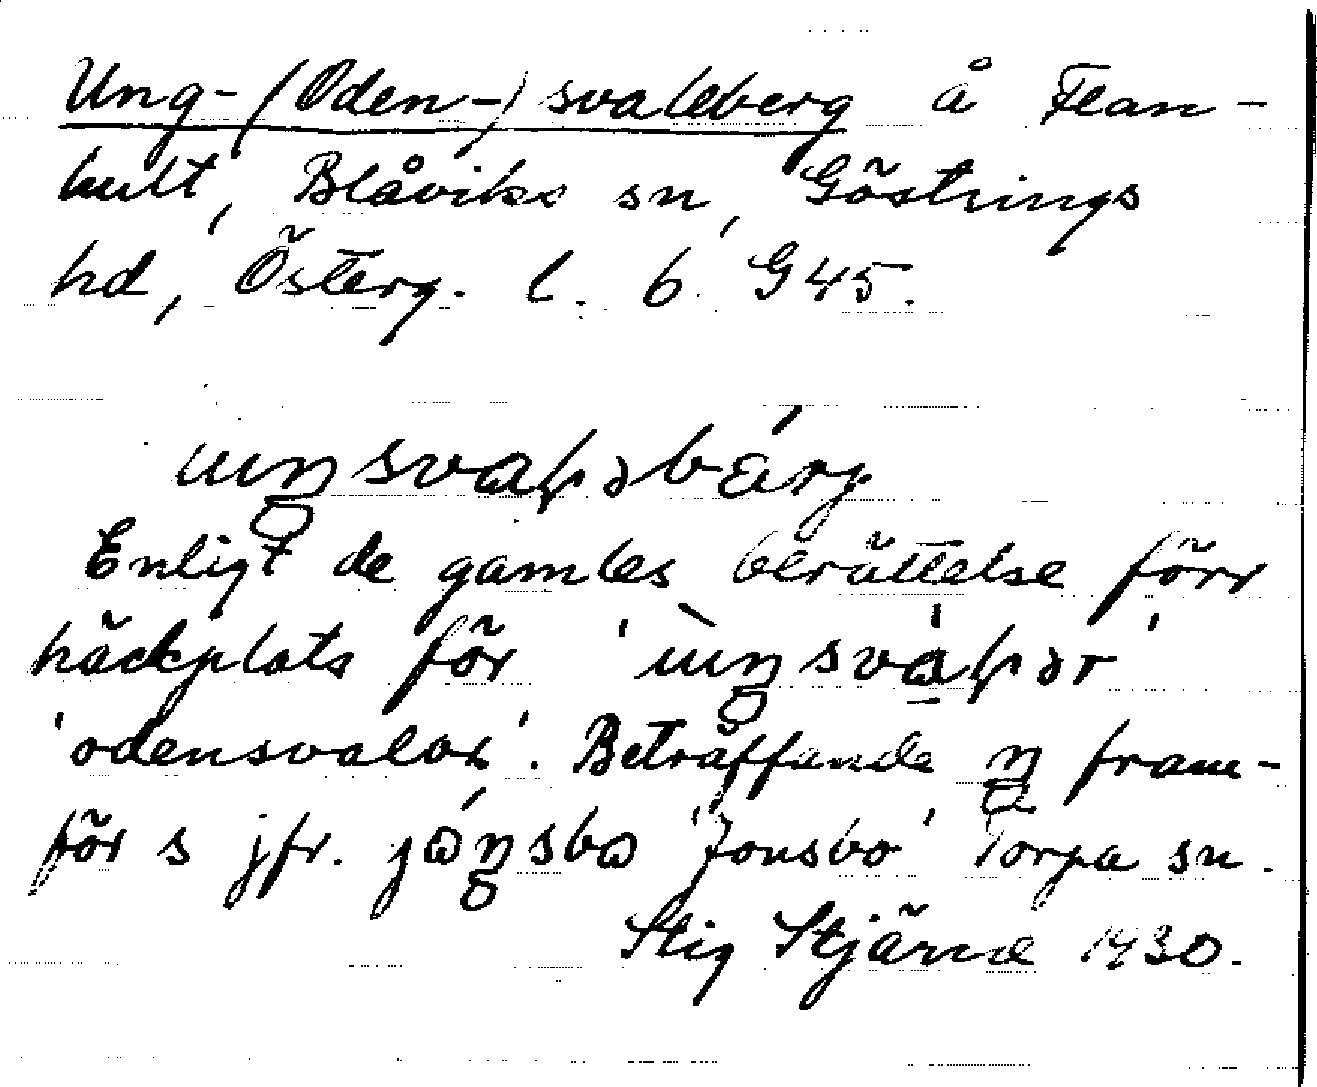 Ung- (Oden-) svaleberg å Flan-
hult, Blåviks sn, Göstrings
hd, Österg. l. 6 G 45.
uŋsvaḷəbärg
Enligt de gamles berättelse förr
häckplats för 'ùŋsvàḷər'
'odensvalor'. Beträffande ŋ fram-
för s jfr. jóŋsbo 'Jonsbo' Torpa sn.
Stig Stjärna 1930.